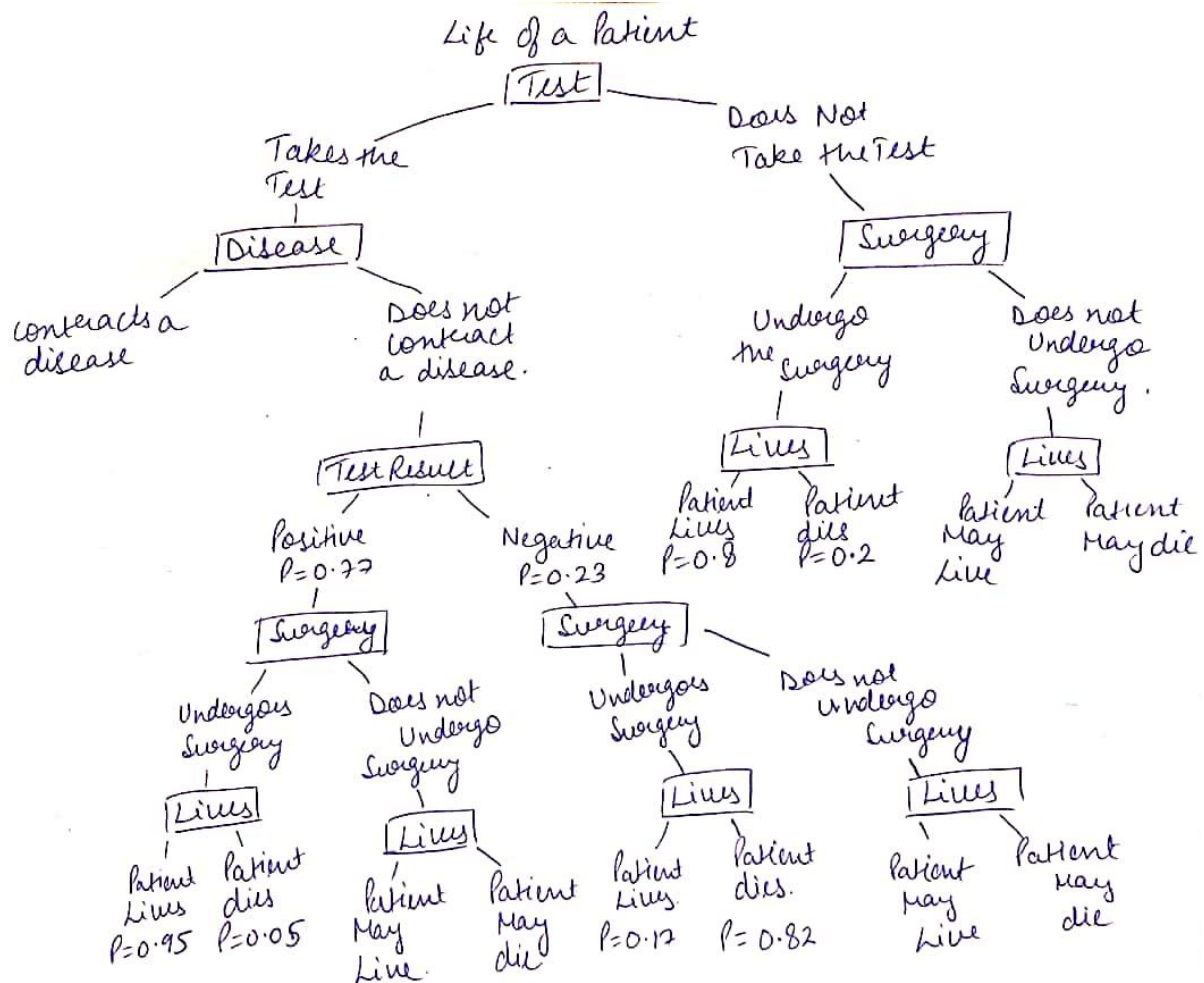 Life of a Patient
Test
Takes the
Test
Does Not
Take the Test
Disease
Surgery
contracts a
disease
Does not
contract
a disease.
Undergo
the Surgery
Does not
Undergo
Surgery.
Test Result
Lives
Lives
Positive
P=0.77
Negative
P=0.23
Patient
Lives
P=0.8
Patient
dies
P=0.2
Patient
May
Live
Patient
May die
Surgery
Surgery
Undergoes
Surgery
Does not
Undergo
Surgery
Undergoes
Surgery
Does not
Undergo
Surgery
Lives
Lives
Lives
Lives
Patient
Lives
P=0.95
Patient
dies
P=0.05
Patient
May
Live.
Patient
May
die
Patient
Lives.
P=0.17
Patient
dies.
P=0.82
Patient
May
Live
Patient
May
die